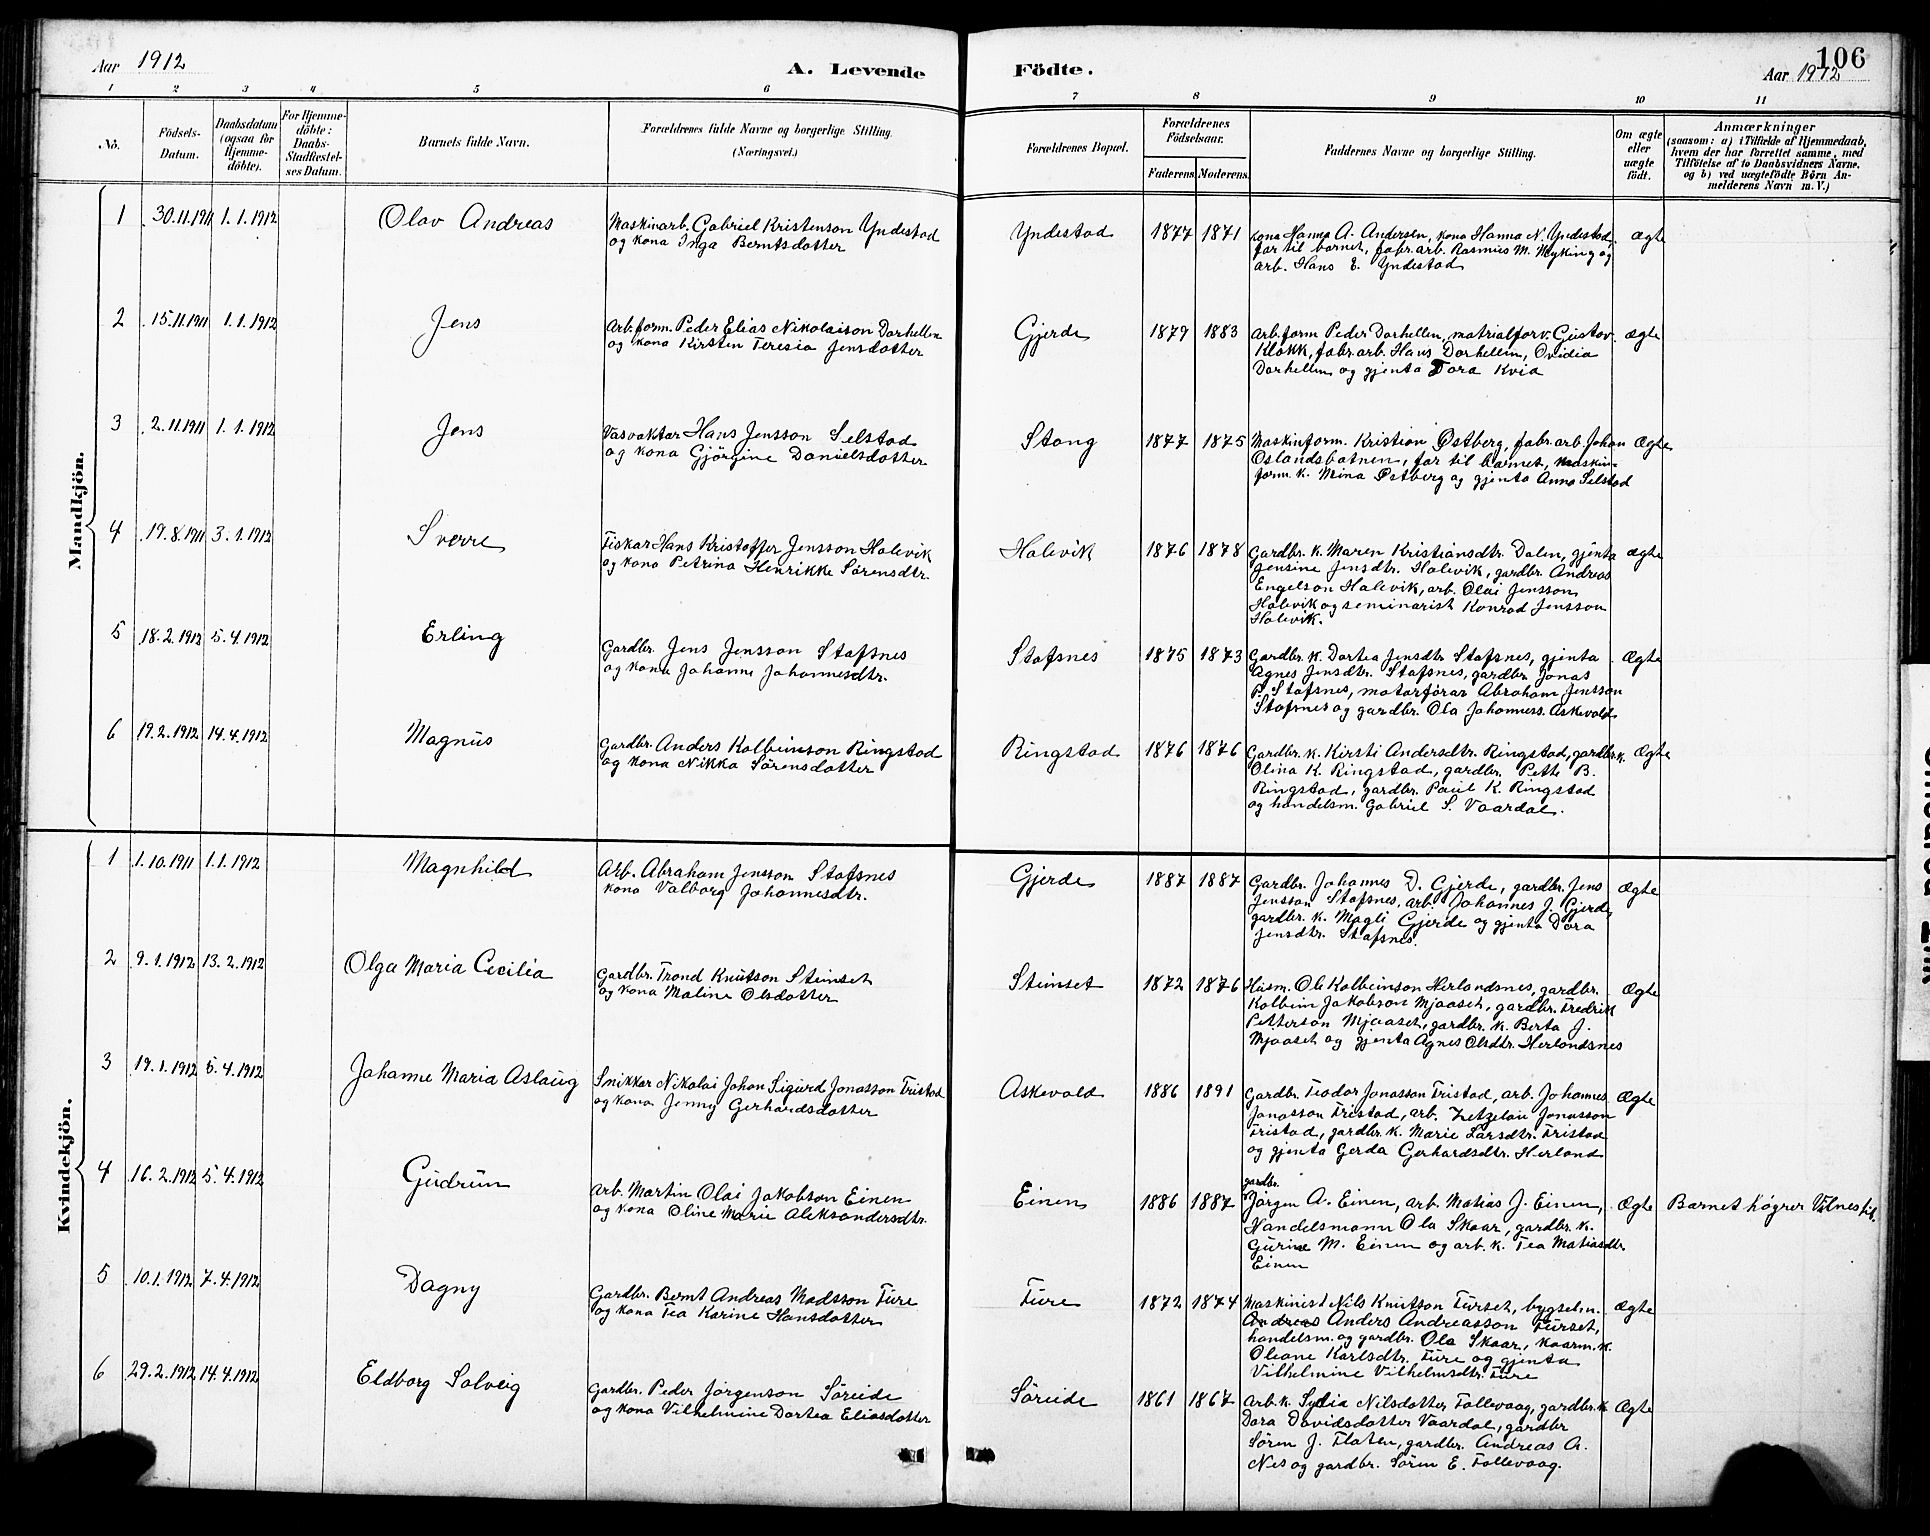 Aar 1912
A. Levende
Födte.
106
Aar 1912
1 2 3 4 5 6 7 8 9 10 11
No.
Födsels-
Datum.
Daabsdatum
(ogsaa for
Hjemme-
döbte).
For Hjemme-
döbte:
Daabs-
Stadfæstel-
ses Datum.
Barnets fulde Navn.
Forældrenes fulde Navne og borgerlige Stilling.
(Næringsvei.)
Forældrenes Bopæl.
Forældrenes
Födselsaar.
Faderens Moderens.
Faddernes Navne og borgerlige Stilling.
Om ægte
eller
uægte
födt.
Anmærkninger
(saasom: a) i Tilfælde af Hjemmedaab,
hvem der har forrettet samme, med
Tilföielse af to Daabsvidners Navne,
og b) ved uægtefödte Börn An-
melderens Navn m. V.)
Mandkjön.
1 30.11.1911 1.1.1912 Olav Andreas
Maskinarb. Gabriel Kristenson Yndestad
og kona Inga Berntsdotter
Yndestad 1877 1871
kona Hanna A. Andersen, kona Hanna N. Yndestad,
far til barnet, fabr.arb. Rasmus M. Myking og
arb. Hans E. Yndestad
ægte
2 15.11.1911 1.1.1912 Jens
Arb.form. Peder Elias Nikolaison Dorhellen
og kona Kirsten Teresia Jensdotter
Gjerde 1879 1883
Arb.form Peder Dorhellen, matrialforv. Gustav
Klokk, fabr.arb. Hans Dorhellen, Ovidia
Dorhellen og gjenta Tora Kvia
ægte
3 2.11.1911 1.1.1912 Jens
Vasvaktar Hans Jensson Selstad
og kona Gjörgine Danielsdotter
Stong 1877 1875
Maskinform. Kristian Østberg, fabr.arb. Johan
Oslandsbotnen, far til barnet, maskin-
form. k. Mina Østberg og gjenta Anna Selstad
Ægte
4 19.8.1911 3.1.1912 Sverre
Fiskar Hans Kristoffer Jensson Holevik
og kona Petrina Henrikke Sörensdtr.
Holevik 1876 1878
Gardbr. k. Maren Kristiansdtr. Dalen, gjenta
Jensine Jensdtr. Holevik, gardbr. Andreas
Engelson Holevik, arb. Olai Jensson
Holevik og seminarist Konrad Jensson
Holevik.
ægte
5 18.2.1912 5.4.1912 Erling
Gardbr. Jens Jensson Stafsnes
og kona Johanne Johannesdtr.
Stafsnes 1875 1873
Gardbr. k. Dortea Jensdtr Stafsnes, gjenta
Agnes Jensdtr. Stafsnes, gardbr. Jonas
P. Stafsnes, motorförar Abraham Jensson
Stafsnes og gardbr. Ola Johanness. Askevold
Ægte
6 19.2.1912 14.4.1912 Magnus
Gardbr. Anders Kolbeinson Ringstad
og kona Nikka Sörensdotter
Ringstad 1876 1876
Gardbr. k. Kirsti Andersdtr. Ringstad, gardbr. k.
Olina K. Ringstad, gardbr. Pette B.
Ringstad, gardbr. Paul K. Ringstad
og handelsm. Gabriel S. Vaardal.
Ægte
Kvindekjön.
1 1.10.1911 1.1.1912 Magnhild
Arb. Abraham Jensson Stafsnes
kona Valborg Johannesdtr.
Gjerde 1887 1887
Gardbr. Johannes D. Gjerde, gardbr. Jens
Jensson Stafsnes, arb. Johannes J. Gjerde,
gardbr. k. Magli Gjerde og gjenta Dora
Jensdtr. Stafsnes.
Ægte
2 9.1.1912 13.2.1912 Olga Maria Cecilia
Gardbr. Trond Knutson Steinset
og kona Maline Olsdotter
Steinset 1872 1876
Husm. Ole Kolbeinson Herlandsnes, gardbr.
Kolbein Jakobson Mjaaset, gardbr. Fredrik
Petterson Mjaaset, gardbr. k. Berta J.
Mjaaset og gjenta Agnes Olsdtr. Herlandsnes
Ægte
3 19.1.1912 5.4.1912 Johanne Maria Aslaug
Snikkar Nikolai Johan Sigurd Jonasson Tristad
og kona Jenny Gerhardsdotter
Askevold 1886 1891
Gardbr. Teodor Jonasson Tristad, arb. Johannes
Jonasson Tristad, arb. Zetzelau Jonasson
Tristad, gardbr. k. Marie Larsdtr. Tristad
og gjenta Gerda Gerhardsdtr. Herland
Ægte
4 16.2.1912 5.4.1912 Gudrun
Arb. Martin Olai Jakobson Einen
og kona Oline Marie Aleksandersdtr.
Einen 1886 1887
gardbr.
Jörgen A. Einen, arb. Matias J. Einen,
Handelsmann Ola Skaar, gardbr. k.
Gurine M. Einen og arb. k. Tea Matiasdtr
Einen
Ægte
Barnet høgrer Vilnes til.
5 10.1.1912 7.4.1912 Dagny
Gardbr. Bernt Andreas Madsson Fure
og kona Tea Karine Hansdotter
Fure 1872 1874
Maskinist Nils Knutson Furset, bygselm.
Andreas Anders Andreasson Furset,
handelsm. og gardbr. Ola Skaar, kaarm. k.
Oleane Karlsdtr. Fure og gjenta
Vilhelmine Vilhelmsdtr. Fure
Ægte
6 29.2.1912 14.4.1912 Eldborg Solveig
Gardbr. Peder Jörgenson Söreide
og kona Vilhelmine Dortea Eliasdotter
Söreide 1861 1867
Arb. k. Sylia Nilsdotter Follevaag, gardbr. k
Dora Davidsdotter Vaardal, gardbr
Sören J. Flaten, gardbr. Andreas A.
Nes og gardbr. Sören E. Follevaag.
Ægte